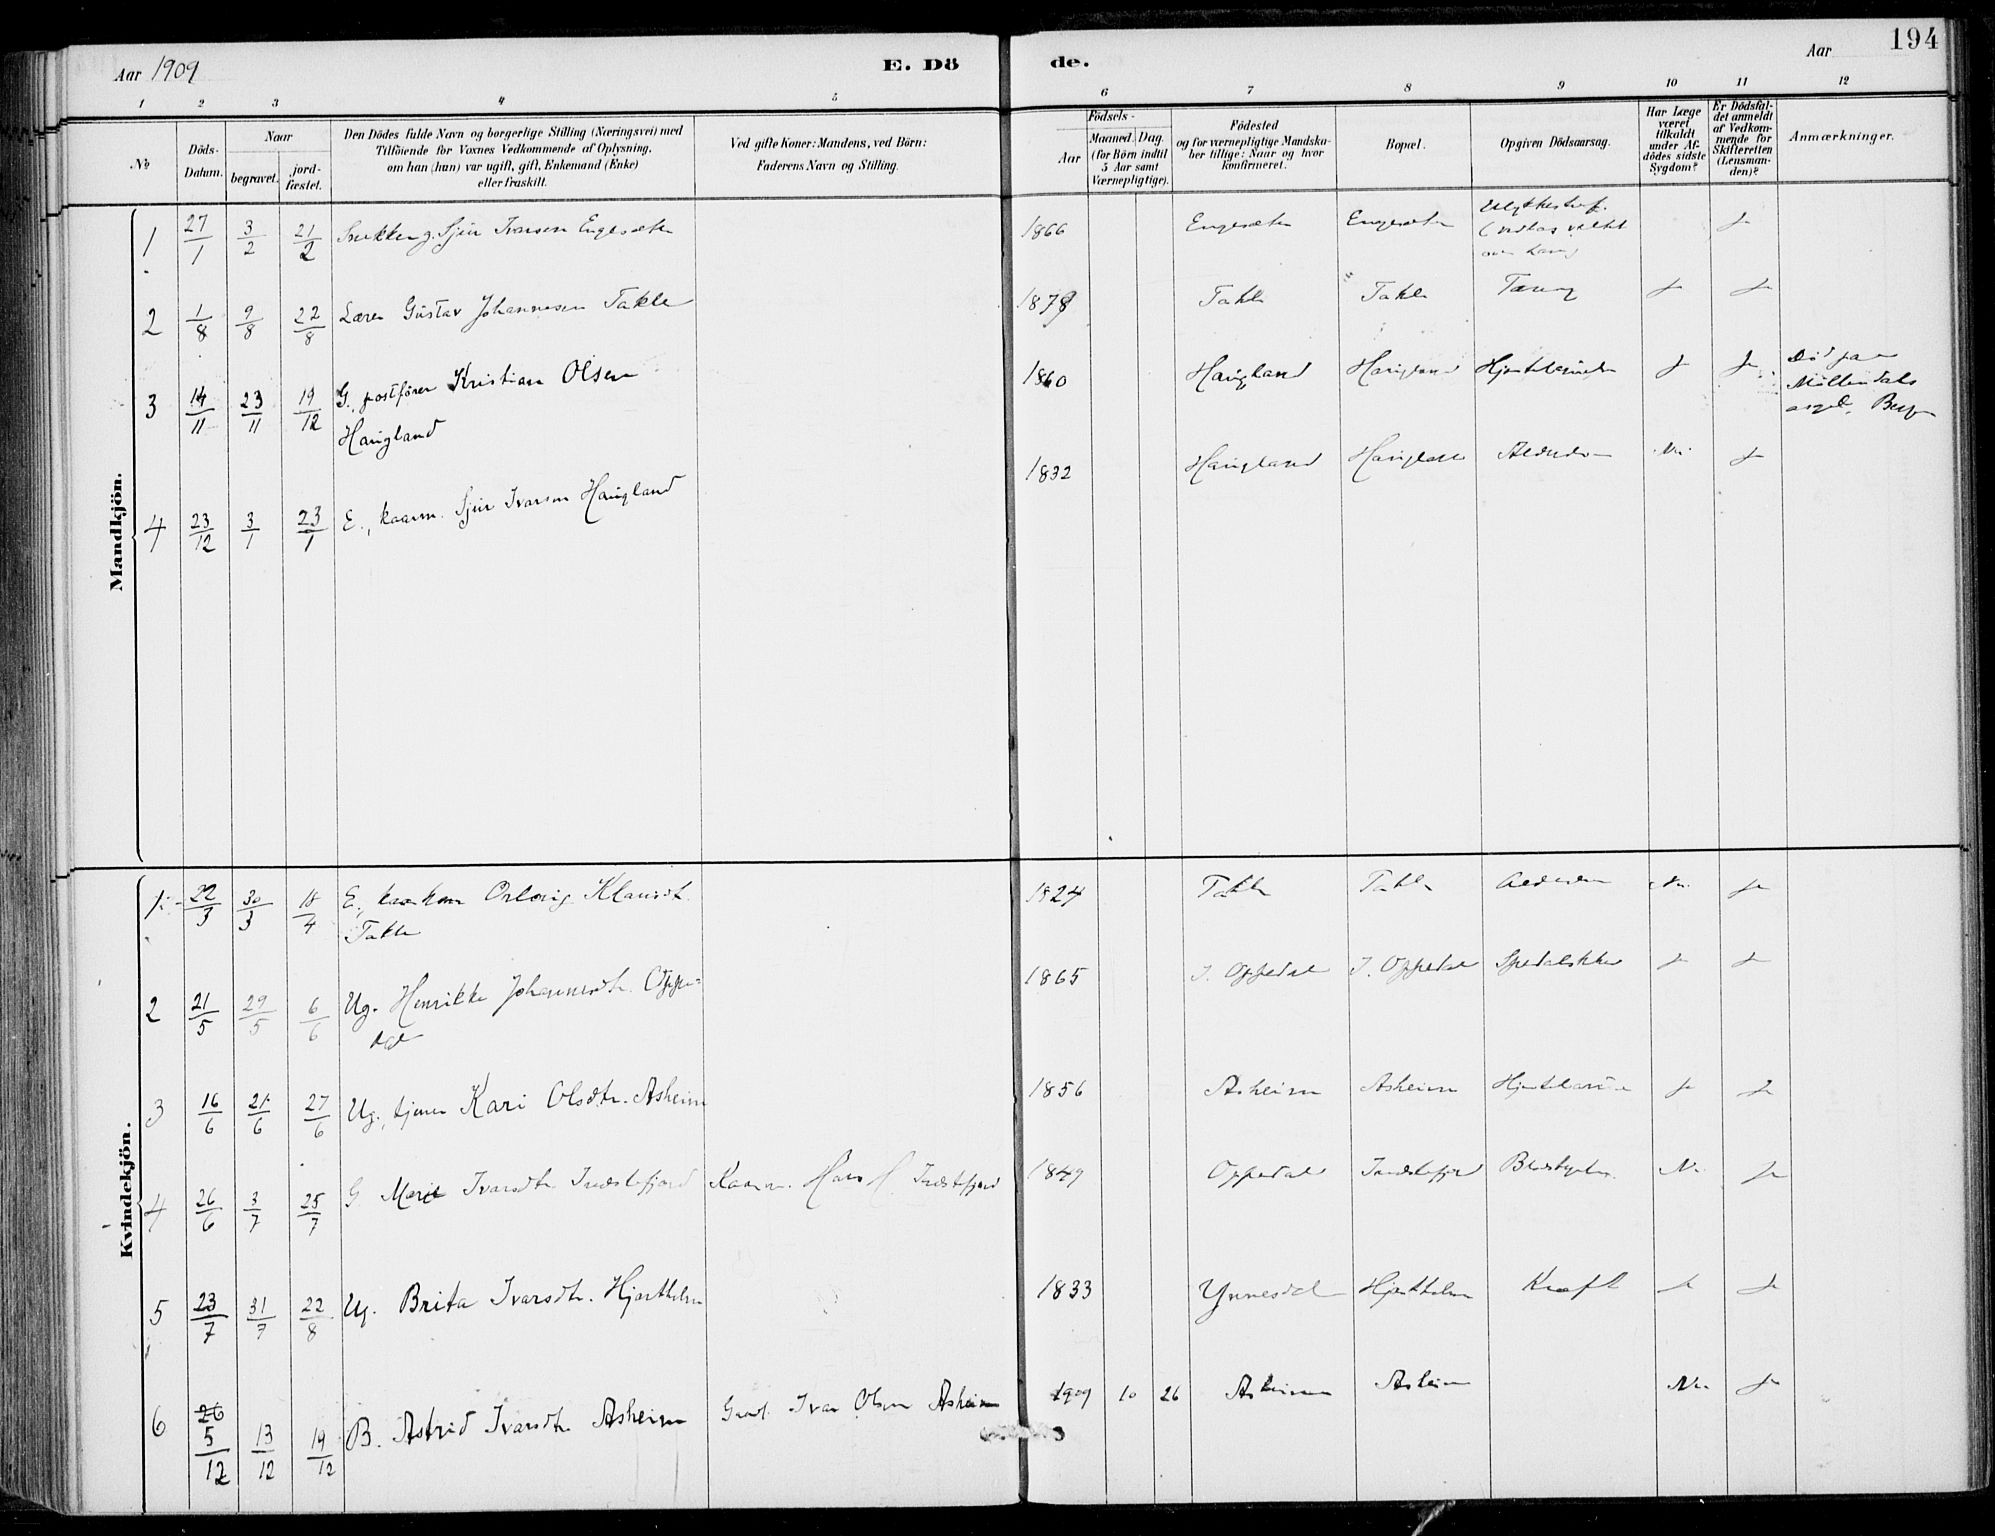 Aar 1909
E. Dö
de.
Aar
194
1 2 3 4 5 6 7 8 9 10 11 12
No
Döds-
Datum.
Naar
begravet.
jord-
fæstet.
Den Dödes fulde Navn og borgerlige Stilling (Næringsvei) med
Tilföiende for Voxnes Vedkommende af Oplysning,
om han (hun) var ugift, gift, Enkemand (Enke)
eller fraskilt.
Ved gifte Koner: Mandens, ved Börn:
Faderens Navn og Stilling.
Födsels-
Aar
Maaned.
Dag.
(for Börn indtil
5 Aar samt
Værnepligtige).
Födested
og for værnepligtige Mandska-
ber tillige: Naar og hvor
konfirmeret.
Bopæl.
Opgiven Dödsaarsag.
Har Læge
været
tilkaldt
under Af-
dödes sidste
Sygdom?
Er Dödsfal-
det anmeldt
af Vedkom-
mende for
Skifteretten
(Lensman-
den)?
Anmærkninger.
Mandkjön.
1 27/1 3/2 21/2 Snekker g. Sjur Ivarsen Engesæter 1866 Engesæter Engesæter Ulykkestilf. J
2 1/8 9/8 22/8 Lærer Gustav Johannesen Takle 1878 Takle Takle Tæring J J
3 14/11 23/11 19/12 G., postfører Kristian Olsen
Haugland 1860 Haugland Haugland J J Død paa
Møllendals
asyl, Bergen
4 23/12 3/1 23/1 E., kaarm. Sjur Ivarsen Haugland 1832 Haugland Haugland Alderdom Nei J
Kvindekjön.
1 22/3 30/3 18/4 E., kaarkone Klausdt.
Takle 1824 Takle Takle Alderdom Nei J
2 21/5 29/5 6/6 Ug. Henrikke Johannesdtr. Oppe-
dal 1865 I. Oppedal I. Oppedal Spedalskhed J J
3 16/6 21/6 27/6 Ug., tjener Kari Olsdtr. Asheim 1856 Asheim Asheim J J
4 26/6 3/7 25/7 G. Marie Ivarsdtr. Indstefjord Kaarm. Hans H. Indstefjord 1849 Oppedal Indstefjord Nei J
5 23/7 31/7 22/8 Ug. Brita Ivarsdtr. Hjartholm 1833 Ynnesdal Hjartholm Kræft J J
6 26
5/12 13/12 19/12 B. Astrid Ivarsdtr. Asheim Gaardb. Ivar Olsen Asheim 1909 10 26 Asheim Asheim Nei J